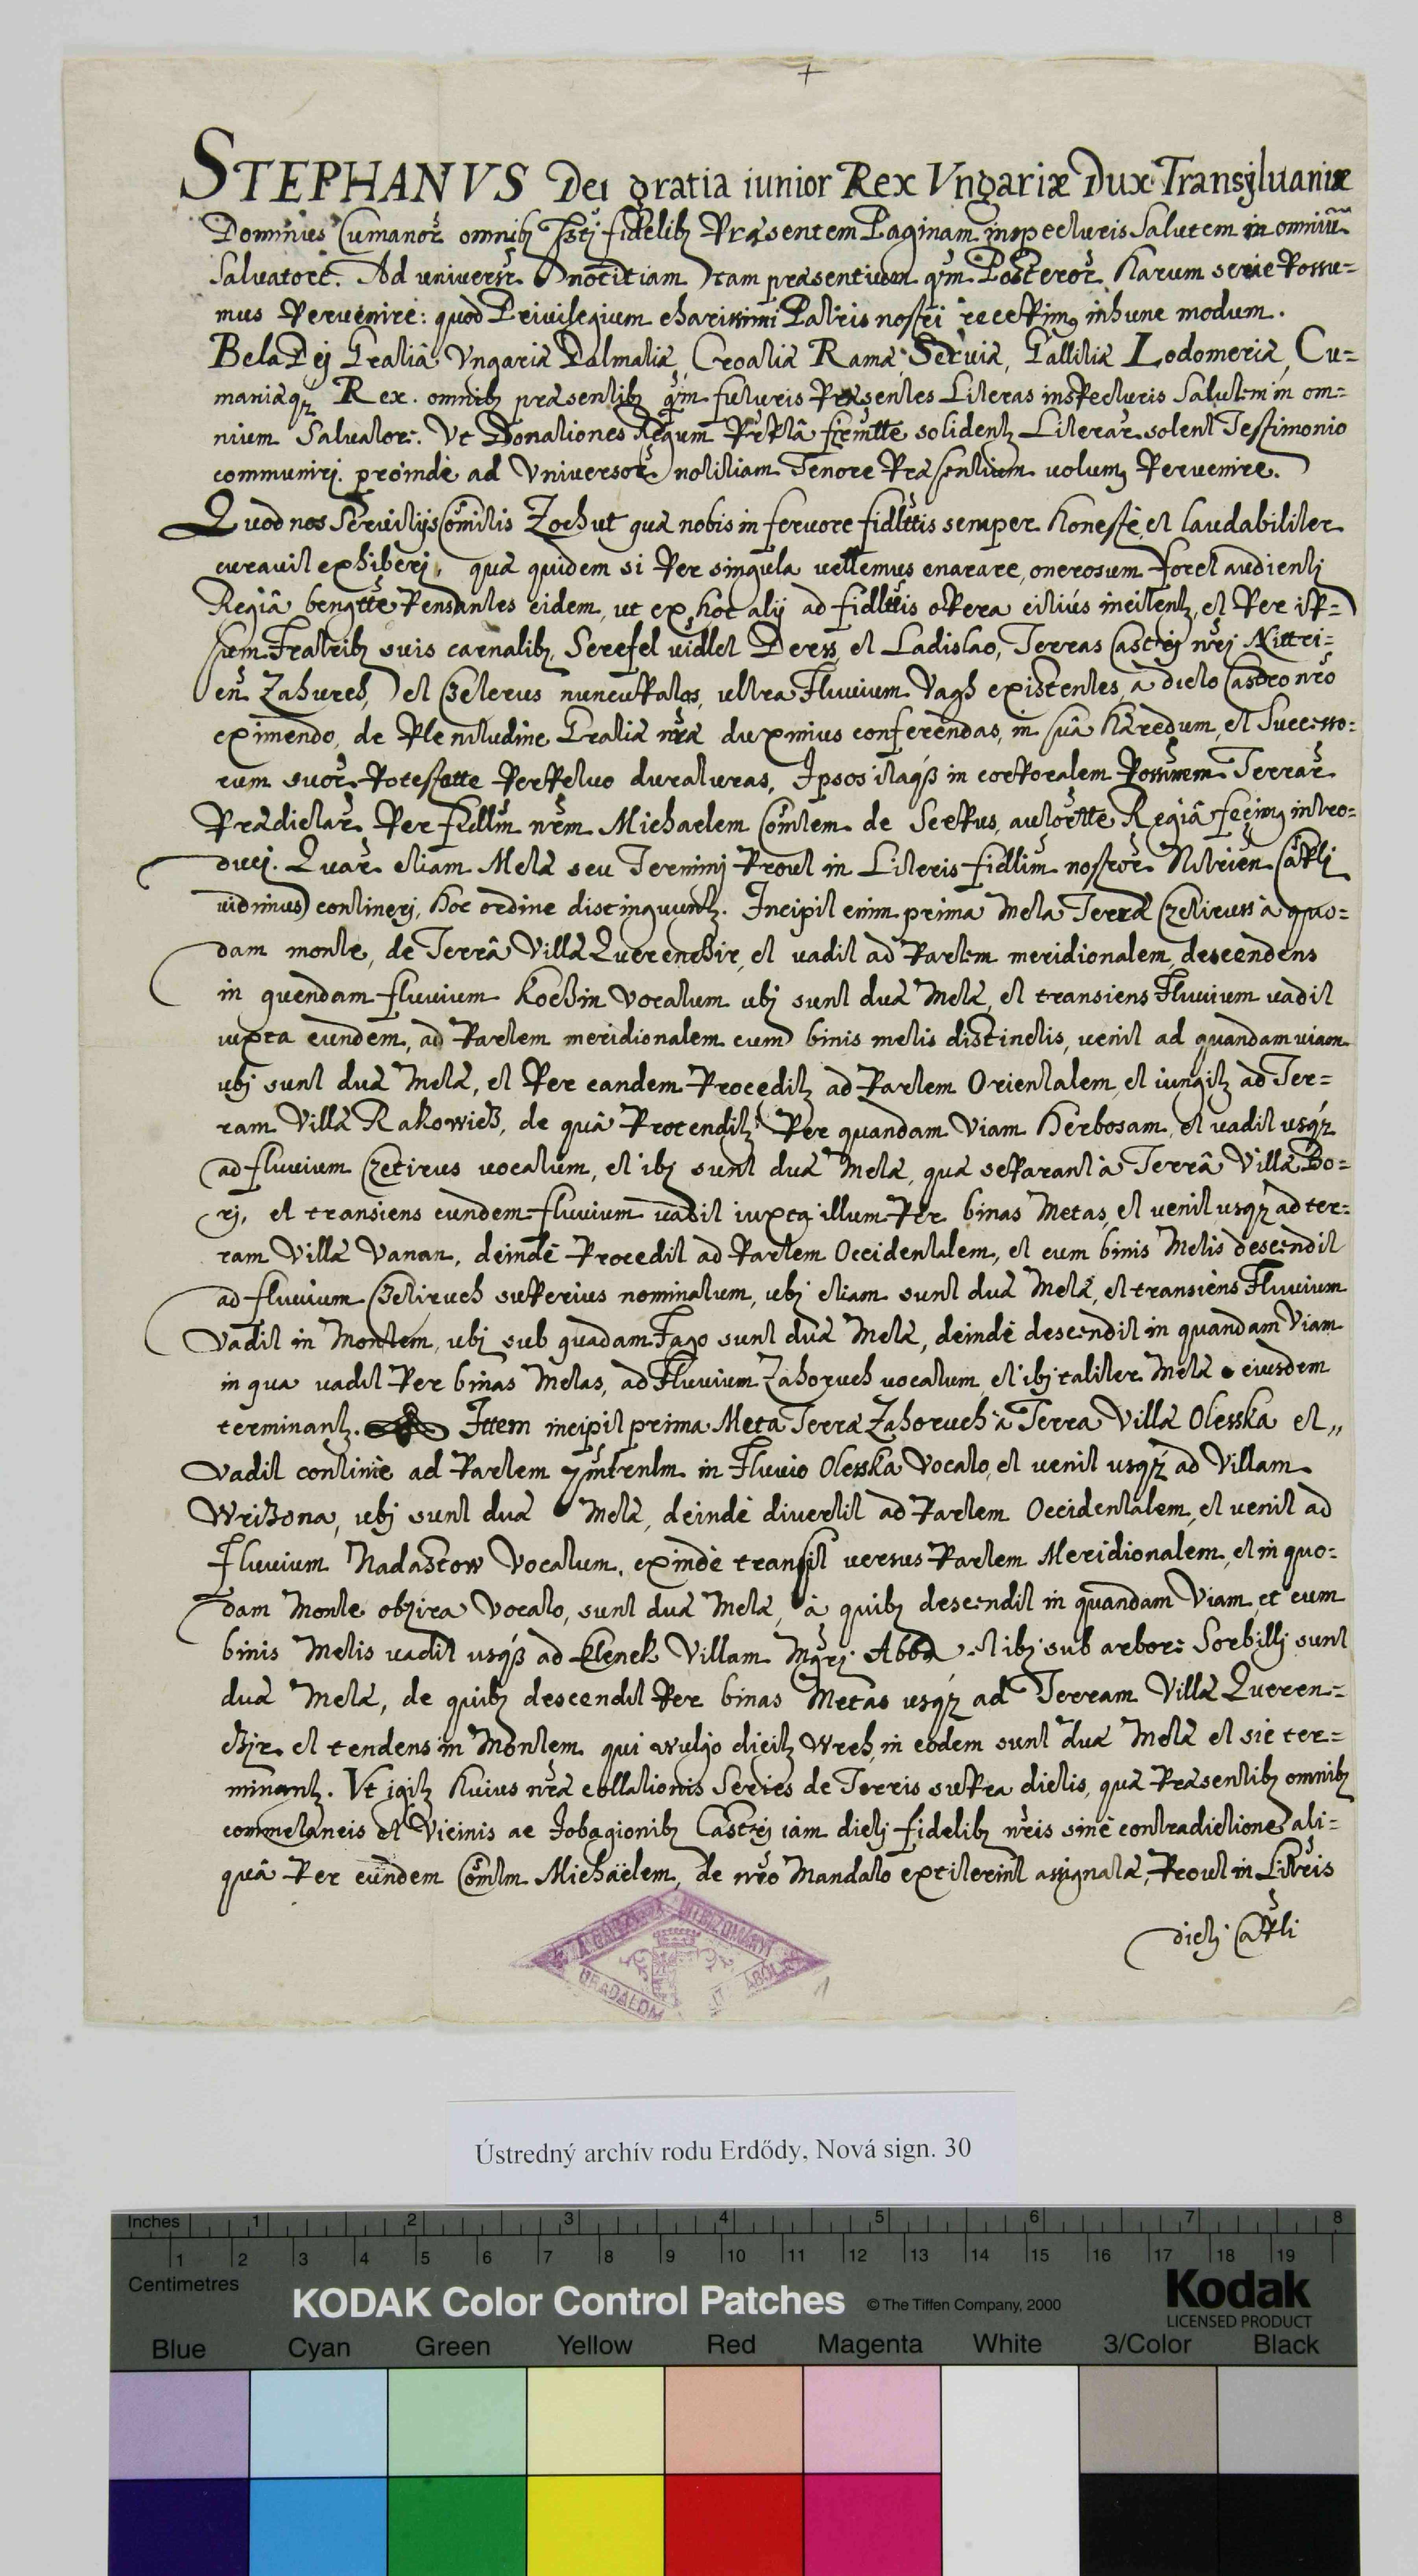 +
STEPHANVS Dei gratia iunior Rex Vngariæ Dux Transÿluaniæ
Dominus Cumanor omnib fidelib Præsentem Paginam inspecturis Salutem in omniũ
Saluatore. Ad universr notitiam tam præsentium qm Posteror harum serie Possu=
mus Pervenire: quod Priuilegium charissimi Patris nostri recepim9 in hunc modum.
Bela Dej Gratiâ Vngariæ Dalmatiæ, Croatiæ Ramæ, Seruiæ, Gallitiæ Lodomeriæ, Cu=
maniæqz Rex. omnib præsentib qm futuris Præsentes Literas inspecturis Salutem in om=
nium Saluator. Vt Donationes Regum Prptâ firmtte solidentz Literar solent Testimonio
communirj. proindè ad Vniversor notitiam Tenore Præsentium volum9 Pervenire.
Quod nos Servitijs Comitis Zochut quæ nobis in fervore fidlttis semper honestè, et laudabiliter
curauit exhiberj, quæ quidem si Per singula vellemus enarare, onerosum foret audientj
Regiâ bengtte Pensantes eidem, ut ex hoc alij ad fidlttis opera citiús incitentz, et Per ip=
sum Fratrib suis carnalib, Serefel uidlet Derss, et Ladislao, Terras Castrj nrj Nittri=
en Zahureh, et Czeterus nuncupatas, ultra Fluuium Vagh existentes, a dicto Castro nro
eximendo, de Plenitudine Gratiæ nræ duximus conferendas, in suâ hæredum, et Successo=
rum suor Potestatte Perpetuo duraturas, Ipsos itaqß in corporalem Possnem Terrar
Prædictar Per fidlm nrm Michaelem Comtem de Serpus, autortte Regiâ fecim9 intro=
ducj. Quar etiam Metæ seu Terminj Prout in Literis fidlim nostror Nitrien Caplj
uidimus) contineri, hoc ordine distinguuntz. Incipit enim prima Meta Terræ Czetiruss à quo=
dam monte, de Terrâ Villæ Querenchir, et vadit ad Partem meridionalem, descendens
in quendam fluuium Kochin Vocatum ubj sunt duæ Metæ, et transiens Fluuium vadit
iuxta eundem, ad Partem meridionalem cum binis metis distinctis, uenit ad quandam uiam
ubj sunt duæ Metæ, et Per eandem Proceditz ad Partem Orientalem, et iungitz ad Ter=
ram Villæ Rakowicß, de quâ Protenditz Per quandam Viam herbosam, et vadit usqz
ad fluuium Czetirus uocatum, et ibj sunt duæ Metæ, quæ separant à Terrâ Villæ Bo=
rj, et transiens eundem fluuium vadit iuxta illum Per binas Metas, et uenit usqz ad ter=
ram Villæ Vanan, deindè Procedit ad Partem Occidentalem, et cum binis Metis descendit
ad fluuium Czetiruch superius nominatum, ubj etiam sunt duæ Metæ, et transiens Fluuium
Vadit in Montem, ubj sub quadam Fago sunt duæ Metæ, deindè descendit in quandam Viam
in qua vadit Per binas Metas, ad Fluuium Zahoruch uocatum, et ibj taliter Metæ eiusdem
terminantz. Ittem incipit prima Meta Terræ Zahoruch à Terra Villæ Olesska et „
Vadit continuè ad Partem in Fluuio Olesska Vocato, et uenit usqz ad Villam
Wrißona, ubj sunt duæ Metæ, deindè diuertit ad Partem Occidentalem, et uenit ad
Fluuium Nadastow Vocatum, exindè transit versus Partem Meridionalem, et in quo=
dam Monte obzira Vocato, sunt duæ Metæ, à quib descendit in quandam Viam, et cum
binis Metis uadit usqß ad Klenek Villam Mgrj Abbæ et ibj sub arbore Sorbillj sunt
duæ Metæ, de quib descendit Per binas Metas usqz ad Terram Villæ Queren=
chjr, et tendens in Montem qui wulgo dicitz Wreh, in eodem sunt duæ Metæ et sic ter=
minantz. Vt igitz huius nræ collationis Series de Terris supra dictis, quæ Præsentib omnib
commetaneis et Vicinis ac Jobagionib Castrj iam dictj fidelib nris sinè contradictione ali=
quâ Per eundem Comtm Michäelem, de nro Mandato extiterint assignatæ, Prout in Litris
dictj Capli
URADALOM
1
Ústredný archív rodu Erdődy, Nová sign. 30
Inches 1 2 3 4 5 6 7 8
1 2 3 4 5 6 7 8 9 10 11 12 13 14 15 16 17 18 19
Centimetres
KODAK Color Control Patches © The Tiffen Company, 2000
Kodak
LICENSED PRODUCT
Blue Cyan Green Yellow Red Magenta White 3/Color Black